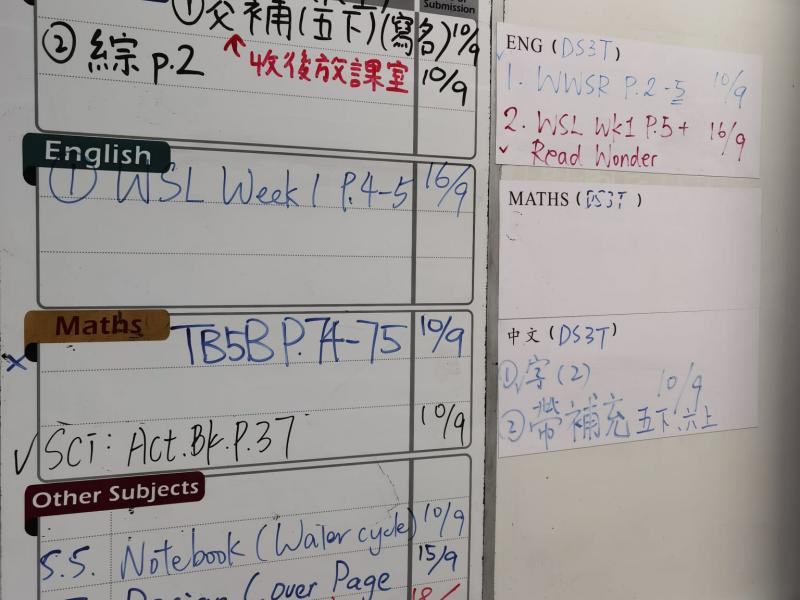 Submission
① 交補(五下)(寫名) 10/9
② 綜 p.2 10/9
收後放課室
English
① WSL Week 1 P.4-5 16/9
Maths
TB5B P.74-75 10/9
Sci: Act.Bk.P.37 10/9
Other Subjects
S.S. Notebook (Water cycle) 10/9
Cover Page 15/9
18/
ENG (DS3T)
1. WWSR P.2-5 10/9
2. WSL Wk1 P.5+ 16/9
Read Wonder
MATHS (DS3T)
中文 (DS3T)
① 字(2)
10/9
② 帶補充五下、六上